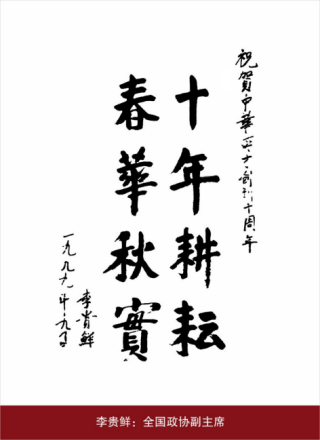 祝贺中華正文創刊十周年
十年耕耘
春華秋實
李貴鲜
一九九九年九月
李贵鲜：全国政协副主席